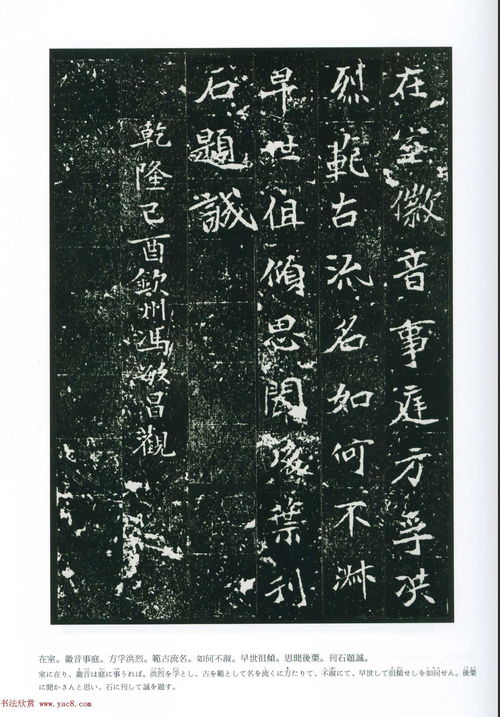 在室徽音事庭方孚洪
烈範古流名如何不淋
早世俎傾思聞後葉刊
石題誠
乾隆己酉欽州馮敏昌觀
在室。徽音事庭。方孚洪烈。範古流名。如何不淑。早世徂傾。思聞後葉。刊石題誠。
室に在り、徽音は庭に事うれば。洪烈を孚とし、古を範として名を流くに方たりて、不淑にて、早世して徂傾せしを如何せん。後葉
に聞かさんと思い、石に刊して誠を題す。
书法欣赏 www.yac8.com